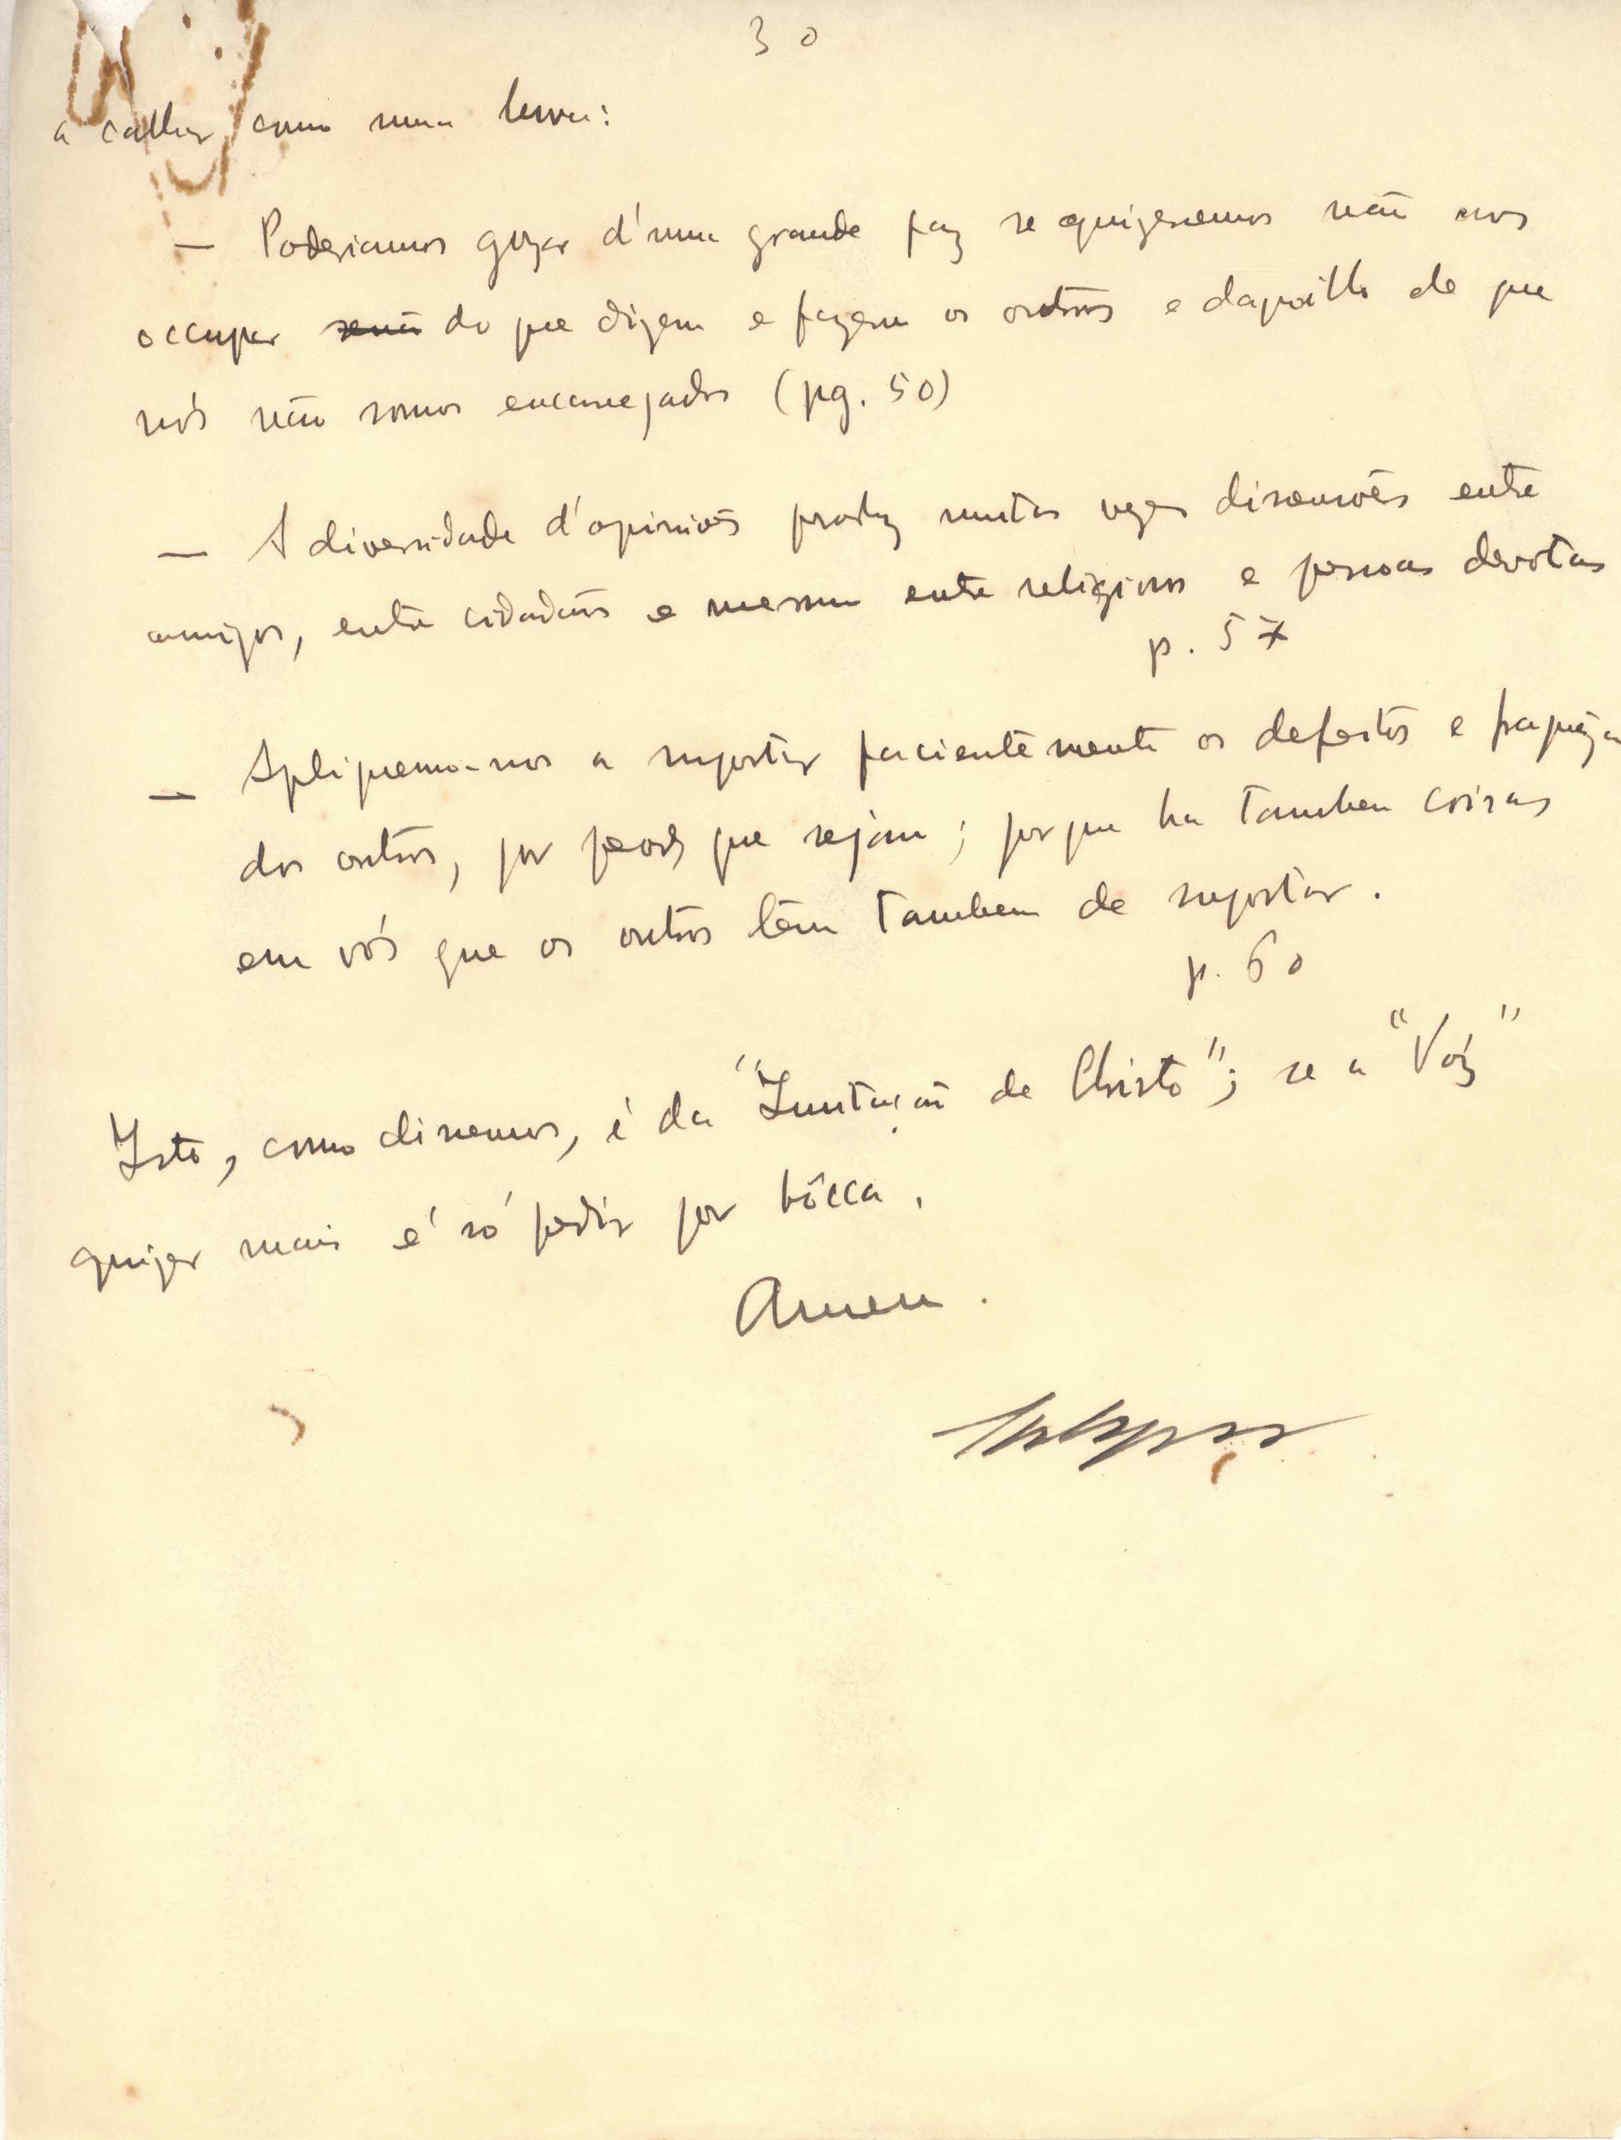 30
a calhar como uma luva:
— Poderiamos gozar d'uma grande paz se quizessemos não nos
occupar senão do que dizem e fazem os outros e daquillo de que
nós não somos encarregados (pg. 50)
— A diversidade d'opiniões produz muitas vezes dissensões entre
amigos, entre cidadãos e mesmo entre religiosos e pessoas devotas
p. 57
— Apliquemo-nos a suportar pacientemente os defeitos e fraquezas
dos outros, por peores que sejam; porque ha tambem coisas
em vós que os outros têm tambem de suportar.
p. 60
Isto, como dissemos, é da "Imitação de Christo"; se a "Voz"
quizer mais é só pedir por bôcca.
Amen.